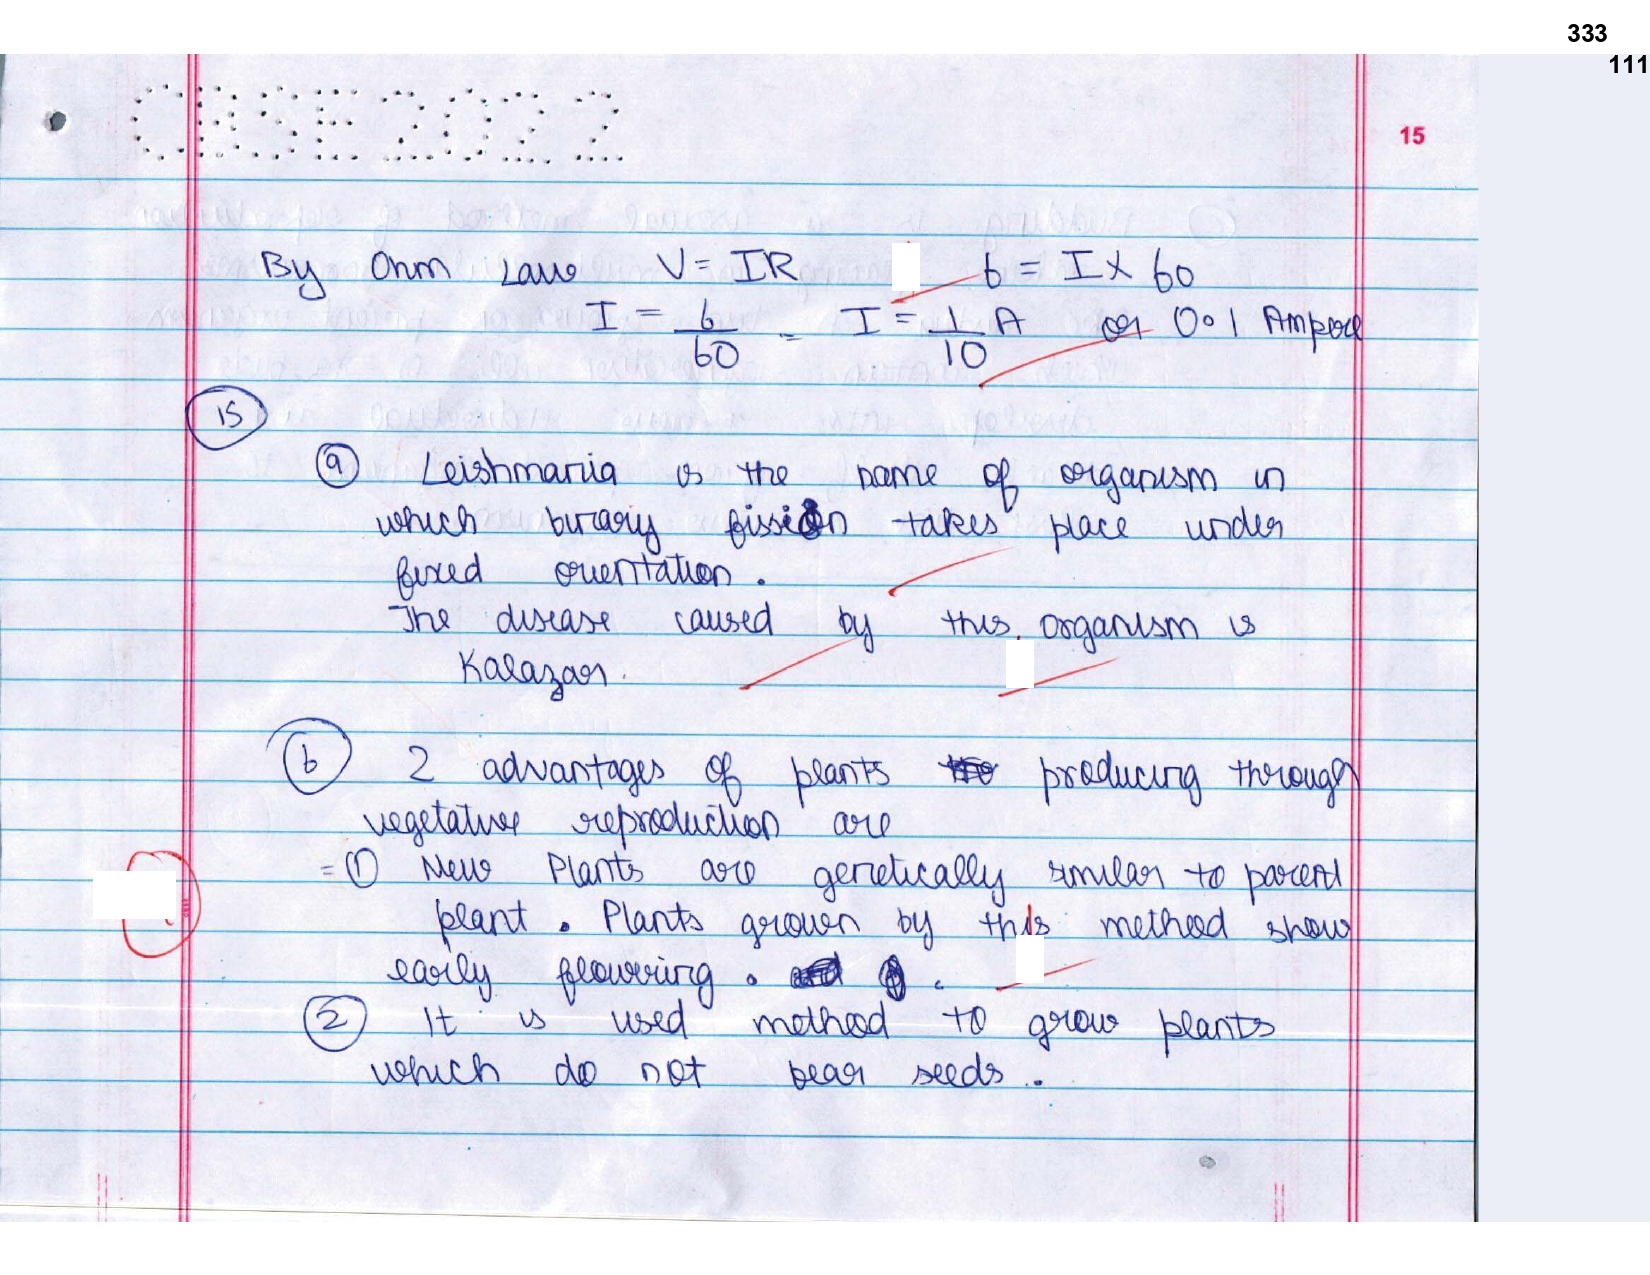 333
111
CBSE2022
15
By Ohm Law V = IR 6 = I X 60
I = 6/60 = I = 1/10 A or 0.1 Ampere
15
a Leishmania is the name of organism in
which binary fission takes place under
fixed orientation.
The disease caused by this organism is
Kalazar.
b 2 advantages of plants producing through
vegetative reproduction are
= 1 New Plants are genetically similar to parent
plant. Plants grown by this method show
early flowering.
2 It is used method to grow plants
which do not bear seeds.